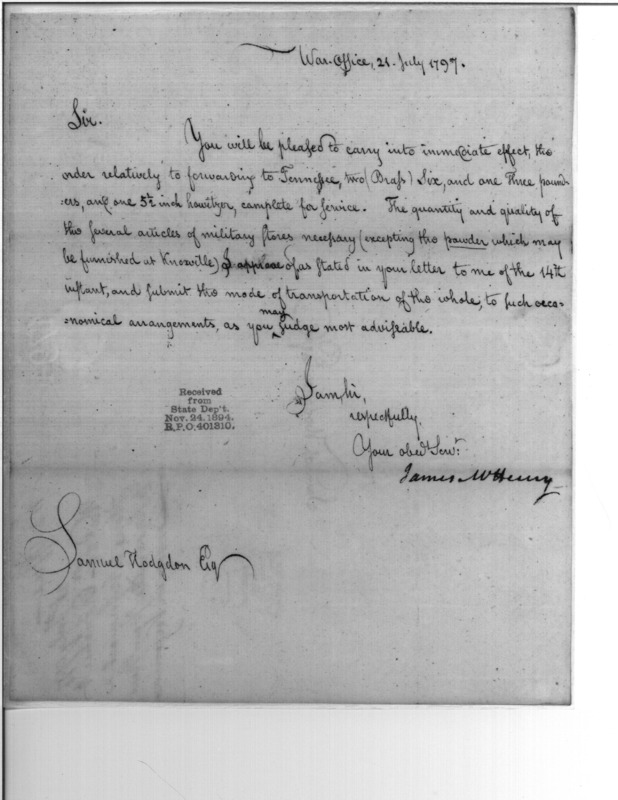 War-Office, 21. July 1797.
Sir.
You will be pleased to carry into immediate effect, the
order relatively to forwarding to Tennessee, two (Brass) Six, and one three pound-
ers, and one 5½ inch howitzer, complete for service. The quantity and quality of
the several articles of military stores necessary (excepting the powder which may
be furnished at Knoxville) I approve of as stated in your letter to me of the 14th
instant, and submit the mode of transportation of the whole, to such oeco-
nomical arrangements, as you may judge most adviseable.
I am, Sir,
respectfully
Your obedt. Servt.
James McHenry
Received
from
State Dep't.
Nov. 24, 1894.
R.P.O. 401310.
Samuel Hodgdon Esq